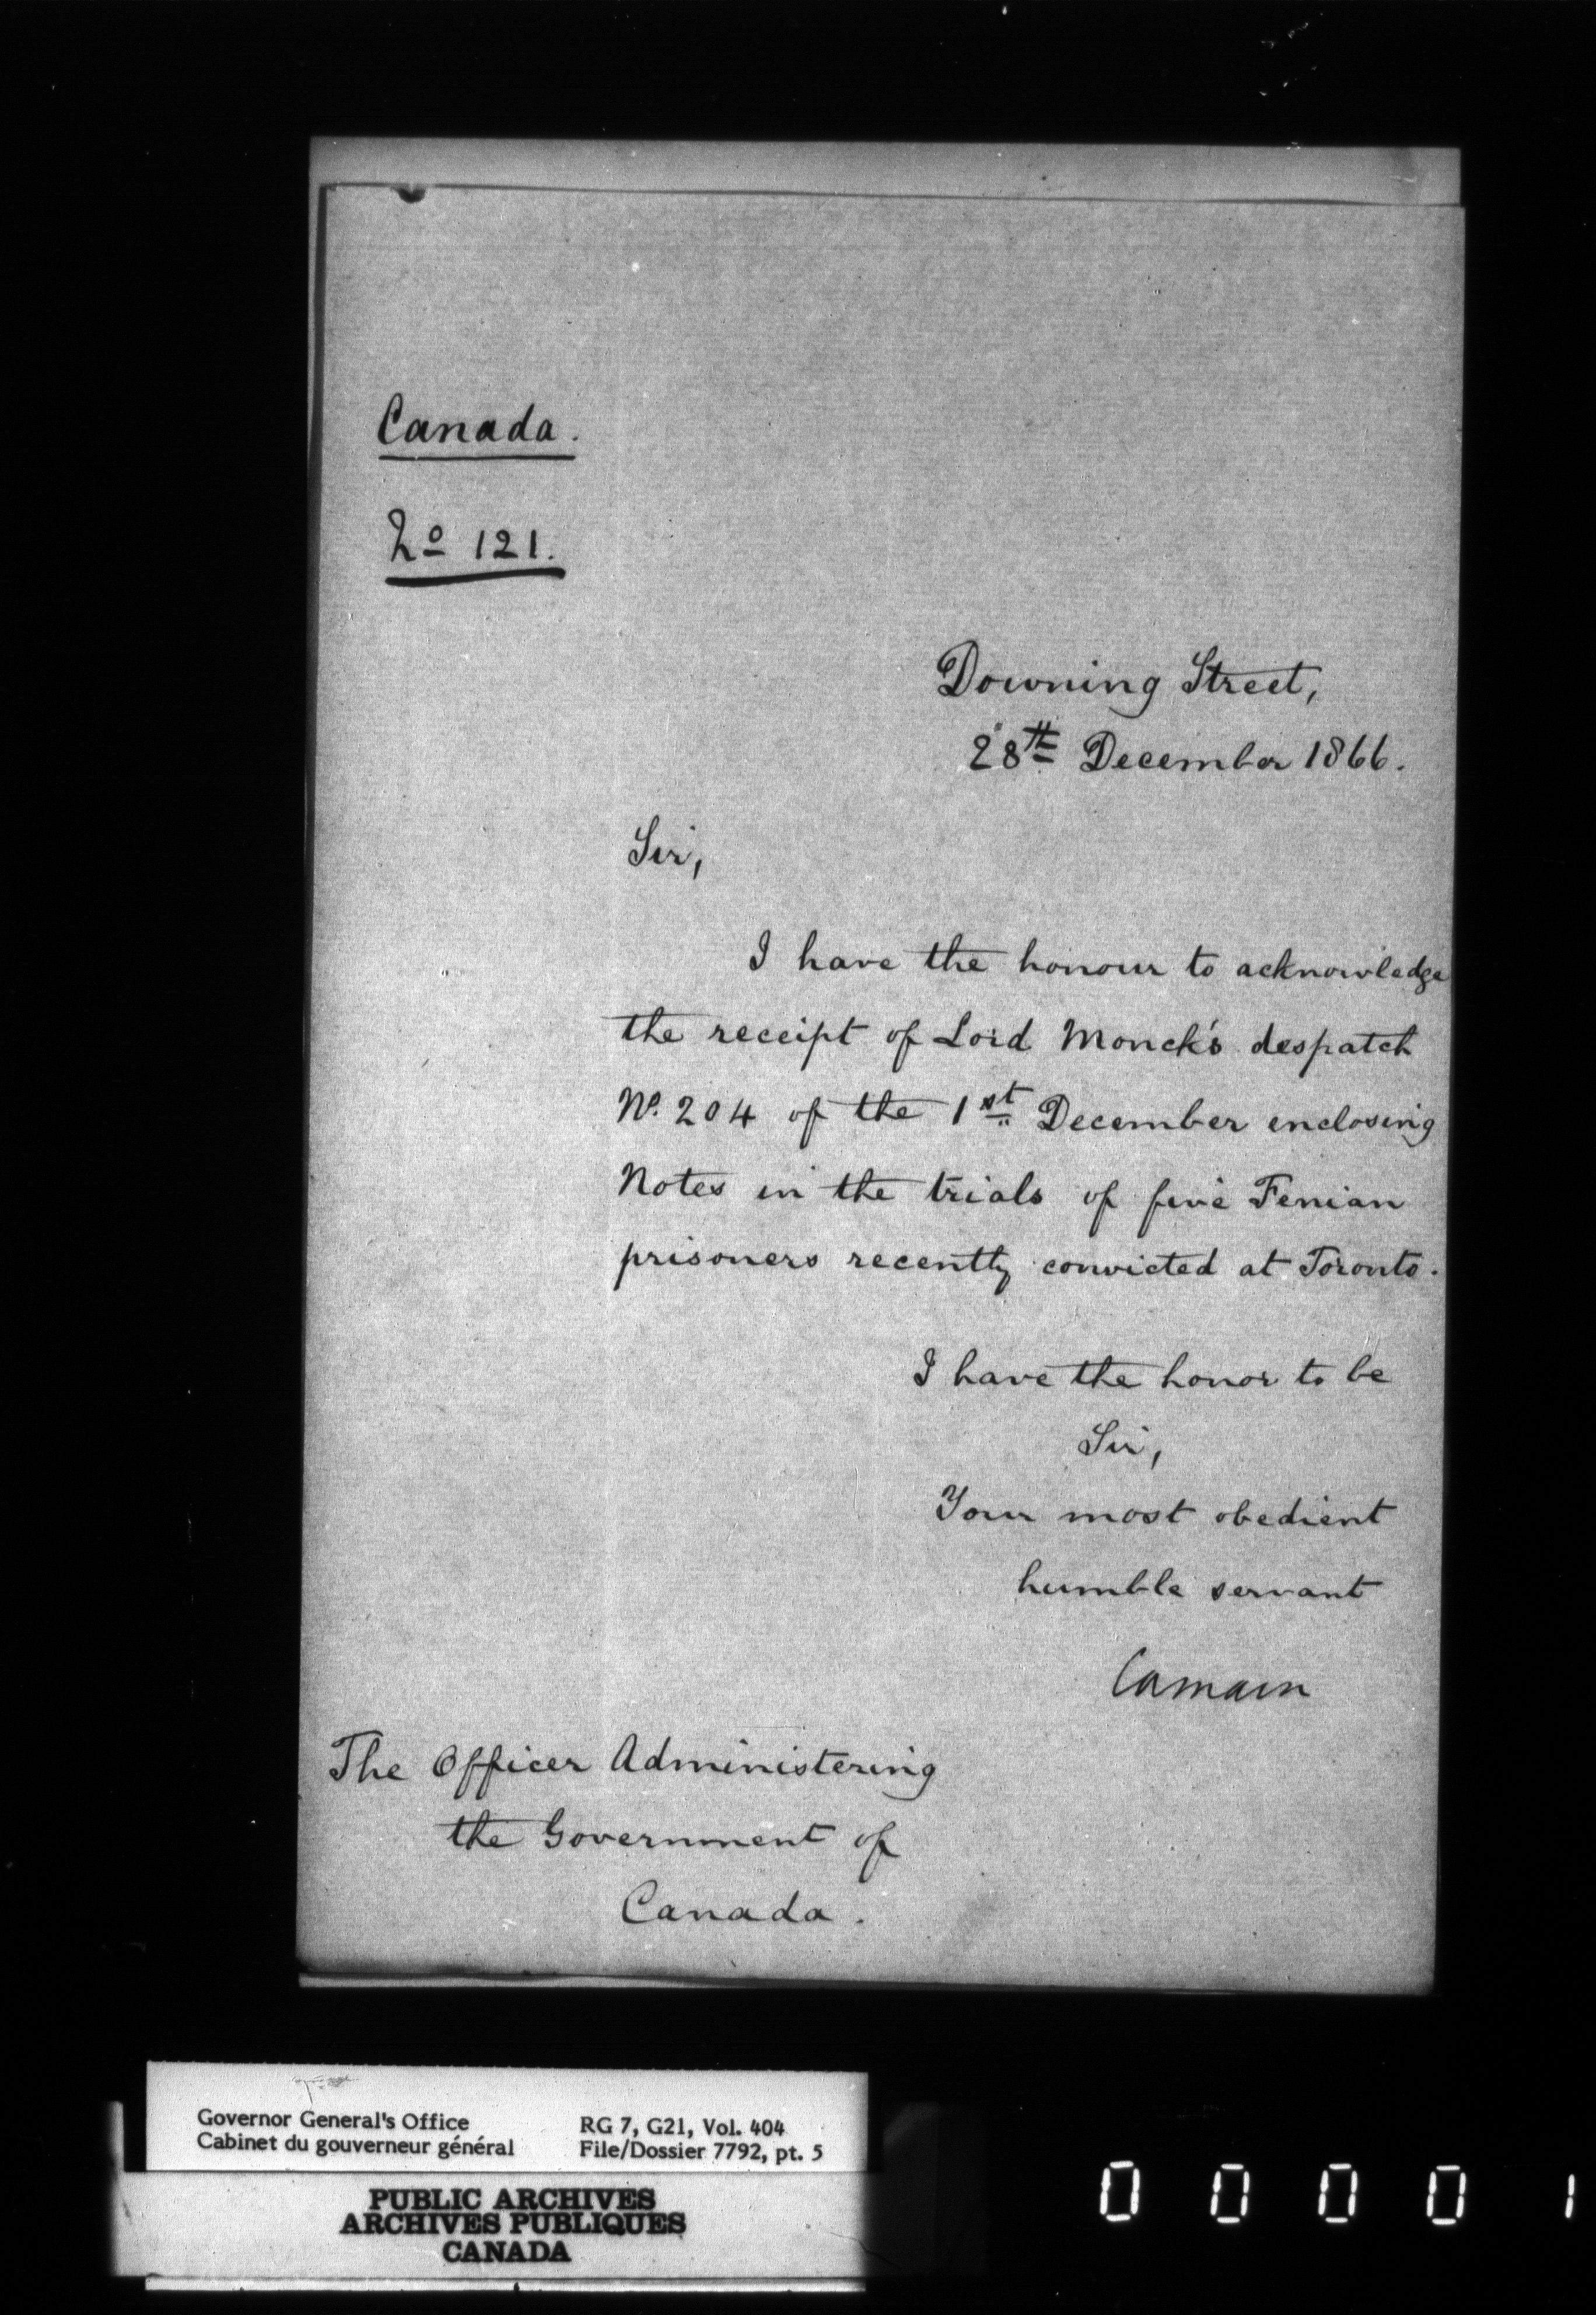 Canada.
No 121.
Downing Street,
28th December 1866.
Sir,
I have the honour to acknowledge
the receipt of Lord Monck's despatch
No. 204 of the 1st December enclosing
Notes in the trials of five Fenian
prisoners recently convicted at Toronto.
I have the honor to be
Sir,
Your most obedient
humble servant
Carnarvon
The Officer Administering
the Government of
Canada.
Governor General's Office
Cabinet du gouverneur général
RG 7, G21, Vol. 404
File/Dossier 7792, pt. 5
PUBLIC ARCHIVES
ARCHIVES PUBLIQUES
CANADA
0 0 0 0 1